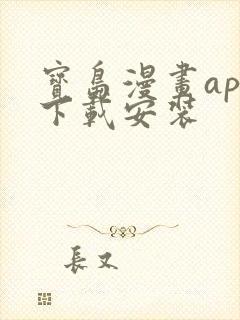 寶島漫畫ap
下載安裝
長又